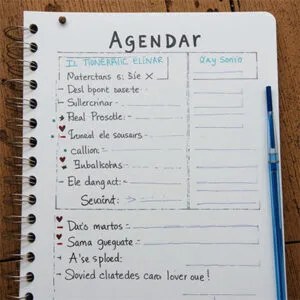 AGENDAR
IL TIONERATIC ELINAR
Day Sonio
Materctans s: Sie X
Desl bpont baste
Sullercrinar
Real Prosotle:
el sousairs
callion:
Subalkotas
Ele dang act:
Seuind:
Dato martos:
Sama gueguate:
A'se sploed:
Slovied cliatedes caro lover oue!